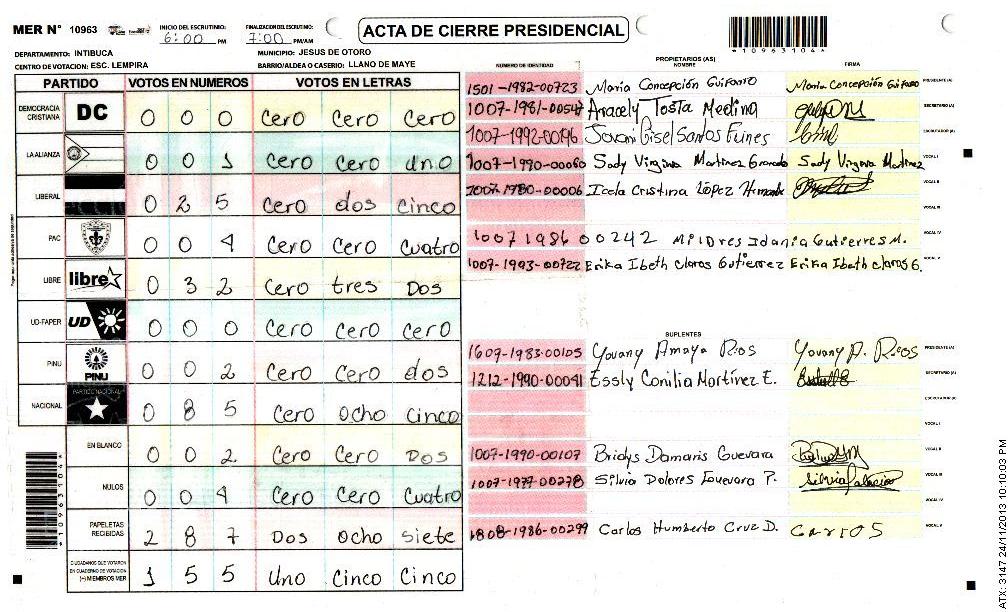 MER N° 10963
INICIO DEL ESCRUTINIO: 6:00 PM
FINALIZACION DEL ESCRUTINIO: 7:00 PM/AM
ACTA DE CIERRE PRESIDENCIAL
*10963104*
DEPARTAMENTO: INTIBUCA
MUNICIPIO: JESUS DE OTORO
CENTRO DE VOTACION: ESC. LEMPIRA
BARRIO/ALDEA O CASERIO: LLANO DE MAYE
PARTIDO VOTOS EN NUMEROS VOTOS EN LETRAS
DEMOCRACIA CRISTIANA DC 0 0 0 Cero Cero Cero
LA ALIANZA 0 0 1 Cero Cero uno
LIBERAL 0 2 5 Cero dos Cinco
PAC 0 0 4 Cero Cero Cuatro
LIBRE libre 0 3 2 Cero tres Dos
UD-FAPER UD 0 0 0 Cero Cero Cero
PINU PINU 0 0 2 Cero Cero dos
NACIONAL PARTIDO NACIONAL 0 8 5 Cero Ocho Cinco
EN BLANCO 0 0 2 Cero Cero Dos
NULOS 0 0 4 Cero Cero Cuatro
PAPELETAS RECIBIDAS 2 8 7 Dos Ocho Siete
CIUDADANOS QUE VOTARON EN CUADERNO DE VOTACION (+) MIEMBROS MER 1 5 5 Uno Cinco Cinco
*10963104*
PROPIETARIOS (AS)
NUMERO DE IDENTIDAD NOMBRE FIRMA
1501-1982-00723 Maria Concepción Guifarro Maria Concepción Guifarro PRESIDENTE (A)
1007-1981-00547 Aracely Tosta Medina SECRETARIO (A)
1007-1992-00196 Jovani Gisel Santos Funes ESCRUTADOR (A)
1007-1990-00060 Sady Virginia Martinez Granado Sady Virginia Martinez VOCAL I
1007-1980-00006 Icela Cristina López VOCAL II
VOCAL III
1007 1986 00242 Mildres Idania Gutierres M. VOCAL IV
1007-1993-00722 Erika Ibeth Claros Gutierrez Erika Ibeth Claros G. VOCAL V
SUPLENTES
1609-1983-00105 Yovany Amaya Rios Yovany A. Rios PRESIDENTE (A)
1212-1990-00041 Essly Conilia Martínez E. SECRETARIO (A)
ESCRUTADOR (A)
VOCAL I
1007-1990-00107 Bridys Damaris Guevara VOCAL II
1007-1977-00278 Silvia Dolores P. VOCAL III
VOCAL IV
1808-1986-00299 Carlos Humberto Cruz D. Carlos VOCAL V
ATX: 3147 24/11/2013 10:10:03 PM